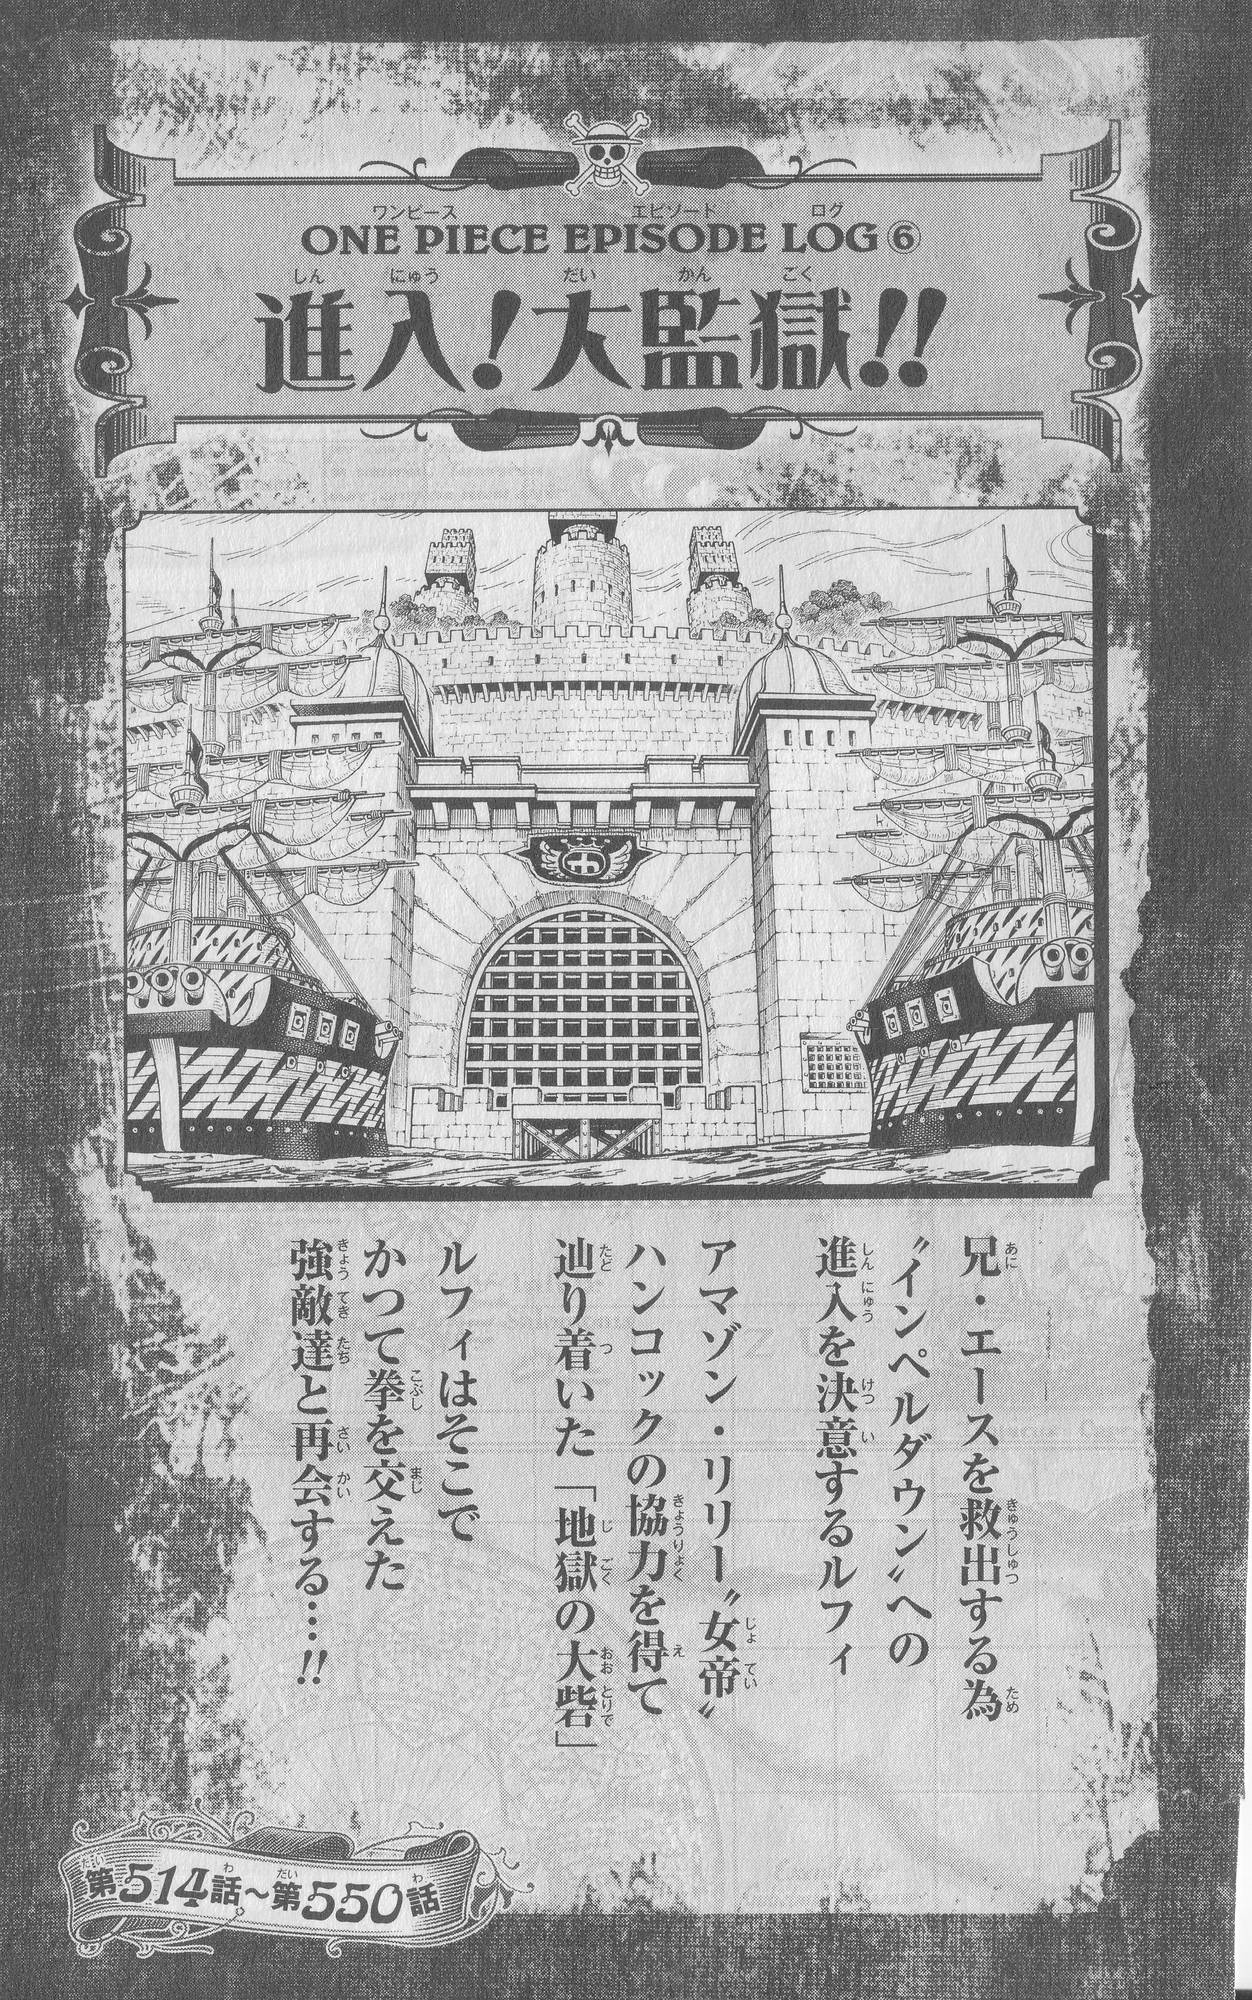 ONE PIECE EPISODE LOG⑥
進入!大監獄!!
兄・エースを救出する為
〝インペルダウン〟への
進入を決意するルフィ
アマゾン・リリー〝女帝〟
ハンコックの協力を得て
辿り着いた「地獄の大砦」
ルフィはそこで
かつて拳を交えた
強敵達と再会する…!!
第514話〜第550話